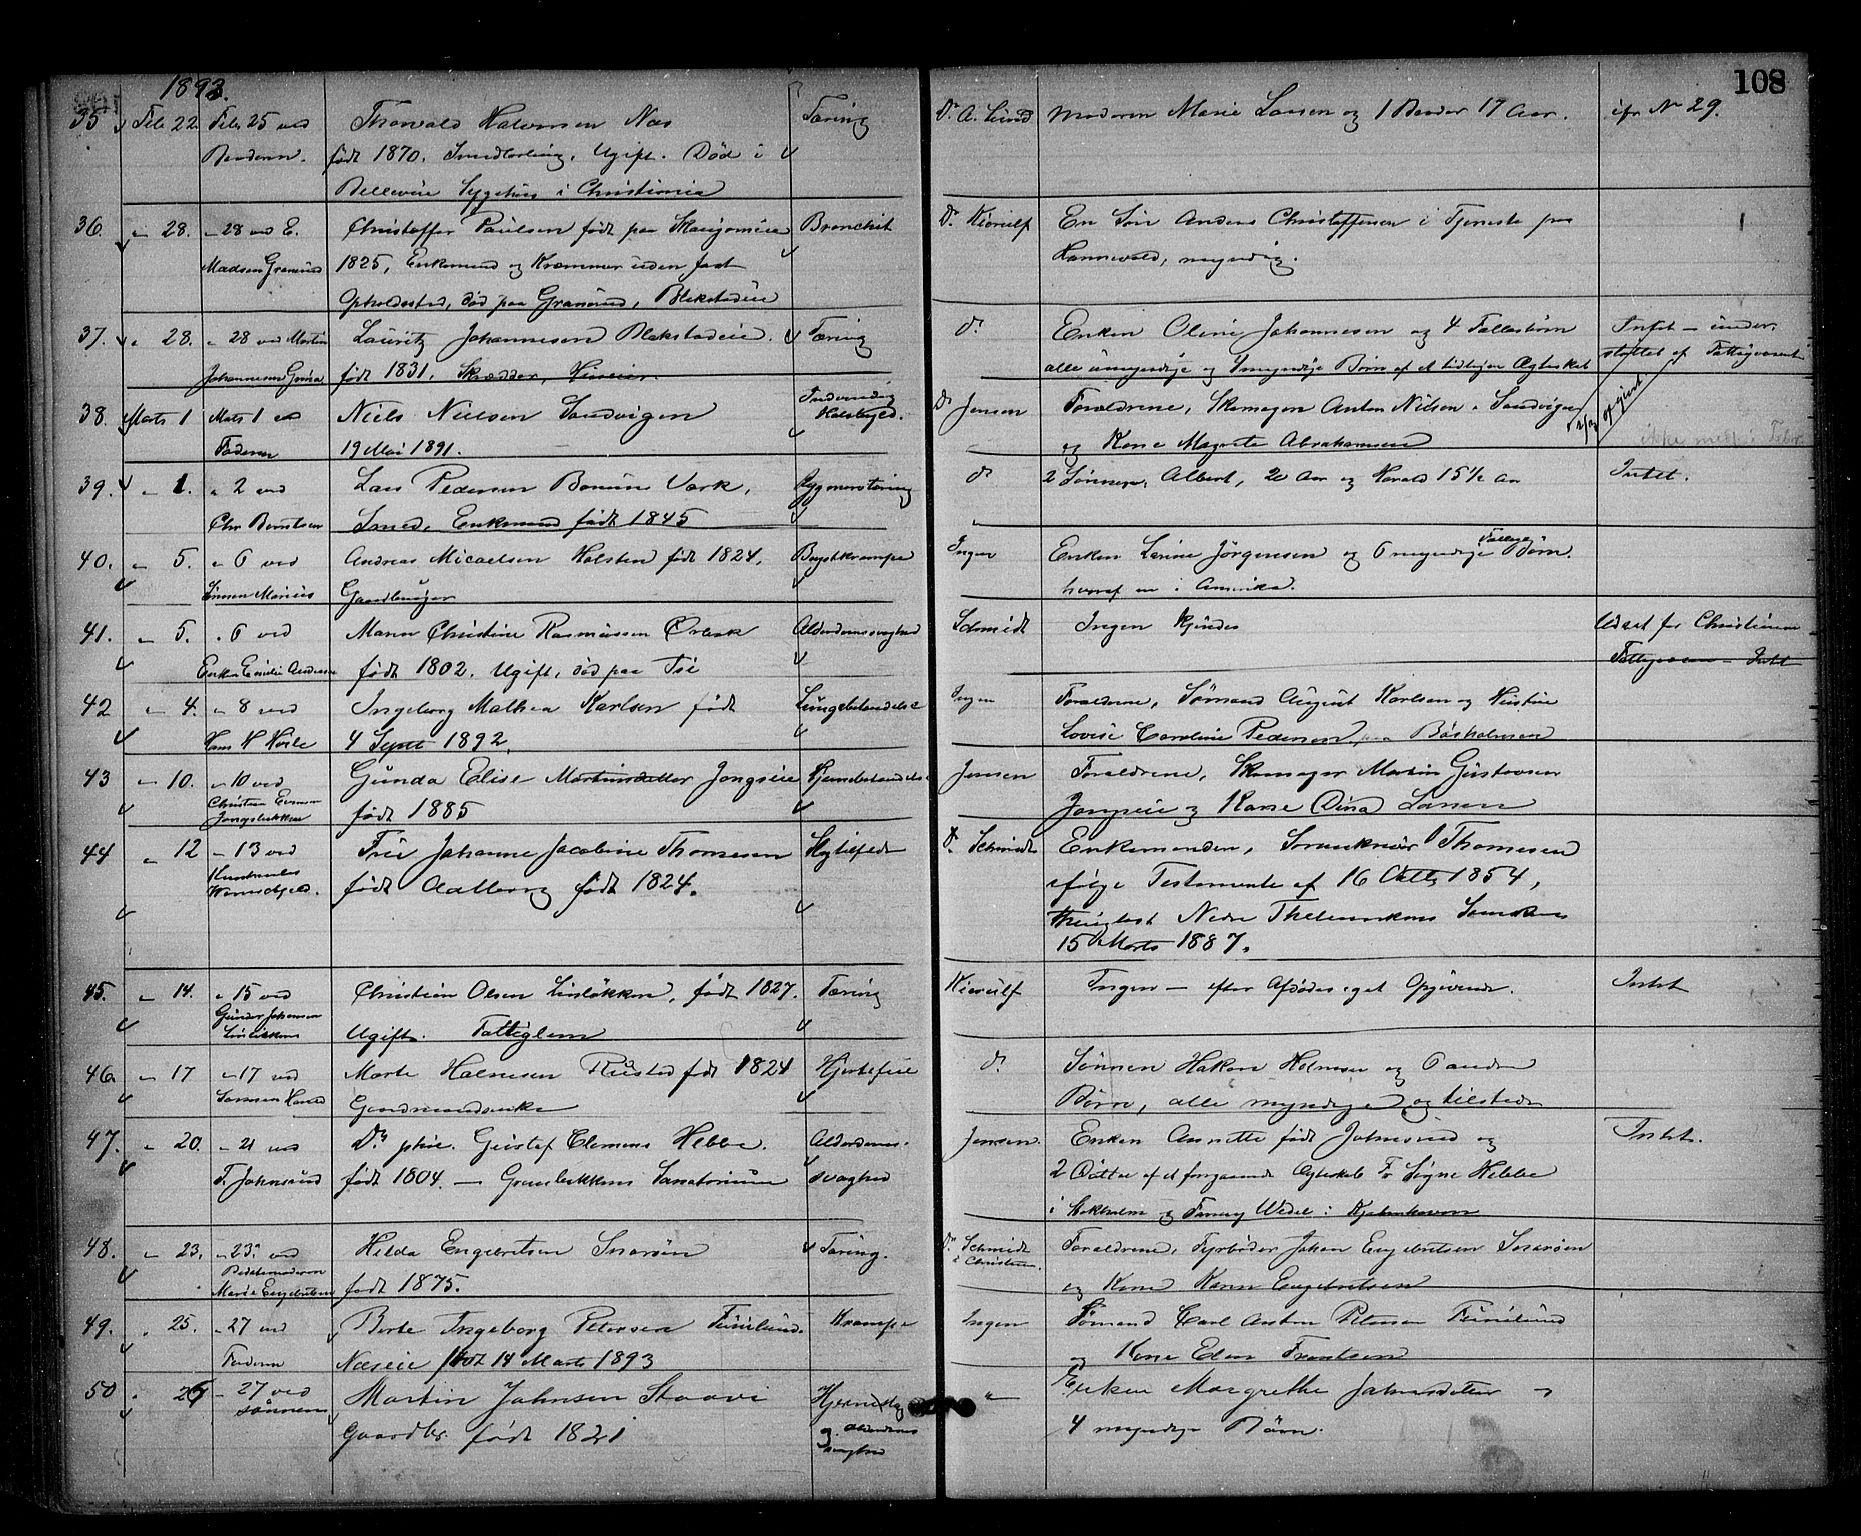 1893.
108
35 Feb. 22 Feb 25 ved Thorvald Halvorsen Næs Tæring Dr. A. Lund Moderen Marie Larsen og 1 Broder 17 Aar. cfr No 29.
Broderen. født 1870. Smedlærling, Ugift. Død i
Bellevue Sygehus i Christiania
36. " 28. " 28 ved E. Christoffer Paulsen født paa Skaugumeie Bronchit Dr Kierulf En Søn Anders Christoffersen i Tjeneste paa
Madsen Gransund 1825, Enkemand og Kræmmer uden fast myndig.
Opholdssted, død paa Gransund, Blekstadeie
37. " 28. " 28 ved Martin Lauritz Johannesen Blekstadeie. Tæring do Enken Oline Johannesen og 4 Fællesbørn Intet – under-
Johannesen født 1831, Skrædder, alle umyndige og 1 myndige Børn af et tidligere Ægteskab støttet af Fattigvæsenet
38. Marts 1 Marts 1 ved Niels Nielsen Sandvigen Indvendig Dr Jensen Forældrene, Skomager Anton Nilsen i Sandvigen opgjort
Faderen 19 Mai 1891. Halsbyld. og Kone Magrete Abrahamsen ikke med i Febr.
39. " 1. " 2 ved Lars Pedersen Bærums Værk, Rygmarvstæring do 2 Sønner, Albert, 20 Aar og Harald 15 1/2 Aar Intet.
Chr Berntsen Smed, Enkemand født 1845
40. " 5. " 6 ved Andreas Micaelsen Holsten født 1824, Brystkrampe Ingen Enken Larine Jørgensen og 6 myndige Fælles Børn.
Sønnen Marius Gaardbruger hvoraf en i Amerika.
41. " 5. " 6 ved Maren Christine Rasmussen Alderdomssvaghed Schmidt Ingen kjendes Udsat for Christiania
Enken Emilie Andersen født 1802. Ugift, død paa Fattigvæsen – Intet
42 " 4. " 8 ved Ingeborg Mathea Karlsen født Lungebetændelse Ingen Forældrene, Sømand August Karlsen og Kristine
Hans H 4 Sept 1892. Lovise Caroline Pedersen, paa Børsholmen
43 " 10. " 10 ved Gunda Elise Martinsdatter Jongseie Hjernebetændelse Jensen Forældrene, Skomager Martin Gustavsen
Christian Evensen
Jongsbakken født 1885 Jongseie og Kone Dina Larsen
44 " 12 " 13 ved Frue Johanne Jacobine Thomesen Slagtilfælde Dr. Schmidt Enkemanden, Thomesen
født Aalborg født 1824. ifølge Testamente af 16 1854,
Thinglæst Nedre Thelemarkens
15 Marts 1887.
45. " 14. " 15 ved Christian Olsen Linløkken, født 1827. Tæring Kierulf Ingen – efter Afdødes eget Opgivende. Intet
Gunder Johansen
Linløkken Ugift. Fattiglem
46. " 17 " 17 ved Marte Halvorsen Rustad født 1824 Hjertefeil do. Sønnen Hakon Halvorsen og 6 andre
Gaardmandsenke Børn, alle myndige og tilstede
47. " 20. " 21 ved Dr. phil. Gustaf Clemens Hebbe. Alderdoms- Jensen. Enken Annette født Johnsrud og Intet.
F. Johnsrud født 1804. – Grønbakkens Sanatorium svaghed 2 Døttre af et foregaaende Ægteskab Fr Signe Hebbe
i Stokholm og Fanny Wedel i Kjøbenhavn
48. " 23. " 23. ved Hilda Engebretsen Snarøen Tæring. Dr. Schmidt Forældrene, Fyrbøder Johan Engebretsen Snarøen
Bedstemoderen i Christiania.
Marie Engebretsen født 1875. og Kone Karen Engebretsen
49. " 25. " 27 ved Berte Ingeborg Petersen Furulund. Krampe Ingen Sømand Carl Anton Petersen Furulund
Faderen Næseie født 14 Marts 1893 og Kone Elen Frantsen
50 " 25 " 27 ved Martin Johnsen Staavi Hjerneslag " Enken Margrethe Johnsdatter og
sønnen Gaardbr. født 1821 og Alderdoms 4 myndige Børn.
svaghed